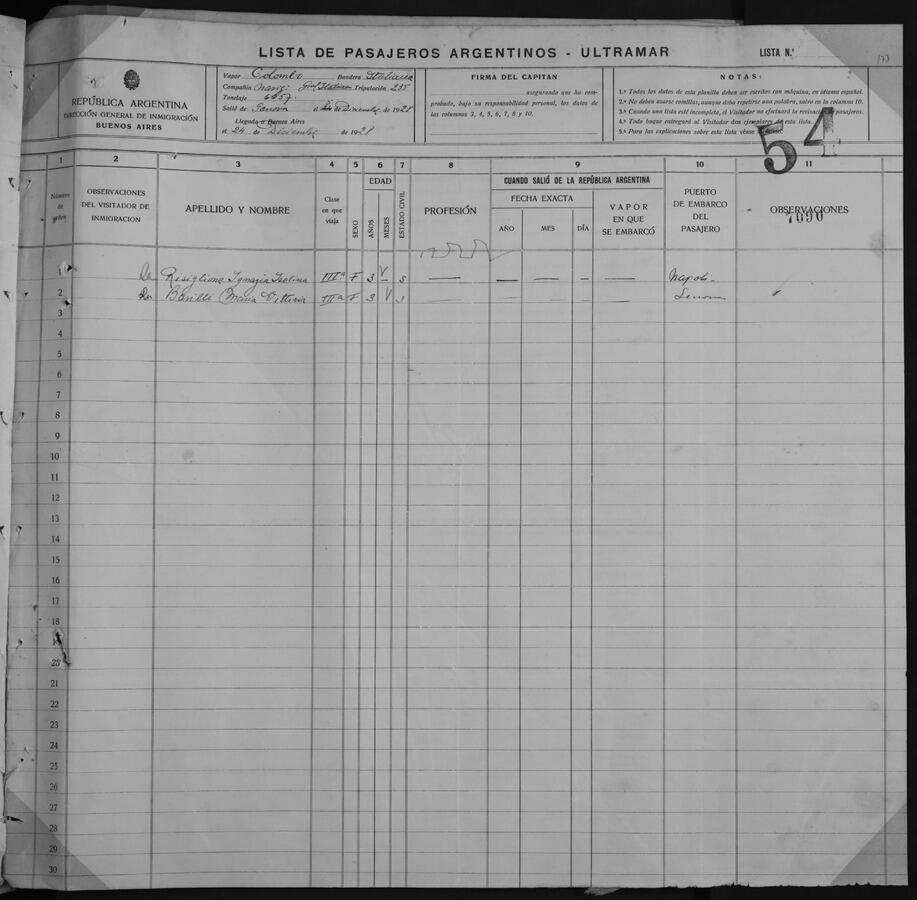 LISTA DE PASAJEROS ARGENTINOS - ULTRAMAR
LISTA N.º
REPÚBLICA ARGENTINA
DIRECCIÓN GENERAL DE INMIGRACIÓN
BUENOS AIRES
Vapor Colombo Bandera Italiana
Compañía Navig. Gral Italiana Tripulación 235
Tonelaje
Salió de Genova el de Diciembre de 1928
Llegado a Buenos Aires
el 24 de Diciembre de 1928
FIRMA DEL CAPITAN
asegurando que ha com-
probado, bajo su responsabilidad personal, los datos de
las columnas 3, 4, 5, 6, 7, 8 y 10.
NOTAS:
1.ª Todos los datos de esta planilla deben ser escritos con máquina, en idioma español.
2.ª No deben usarse comillas, aunque deba repetirse una palabra, salvo en la columna 10.
3.ª Cuando una lista esté incompleta, el Visitador no efectuará la revisación de pasajeros.
4.ª Todo buque entregará al Visitador dos ejemplares de esta lista.
5.ª Para las explicaciones sobre esta lista véase
54
1 2 3 4 5 6 7 8 9 10 11
Número de orden
OBSERVACIONES DEL VISITADOR DE INMIGRACION
APELLIDO Y NOMBRE
Clase en que viaja
SEXO
EDAD
AÑOS
MESES
ESTADO CIVIL
PROFESIÓN
CUANDO SALIÓ DE LA REPÚBLICA ARGENTINA
FECHA EXACTA
AÑO MES DÍA
VAPOR EN QUE SE EMBARCÓ
PUERTO DE EMBARCO DEL PASAJERO
OBSERVACIONES
7690
1 Risiglione Ignazia IIIª F 3 s — — — — — Napoli
2 Maria Vittoria IIIª F 3 s — — — — — Genova
3
4
5
6
7
8
9
10
11
12
13
14
15
16
17
18
19
20
21
22
23
24
25
26
27
28
29
30